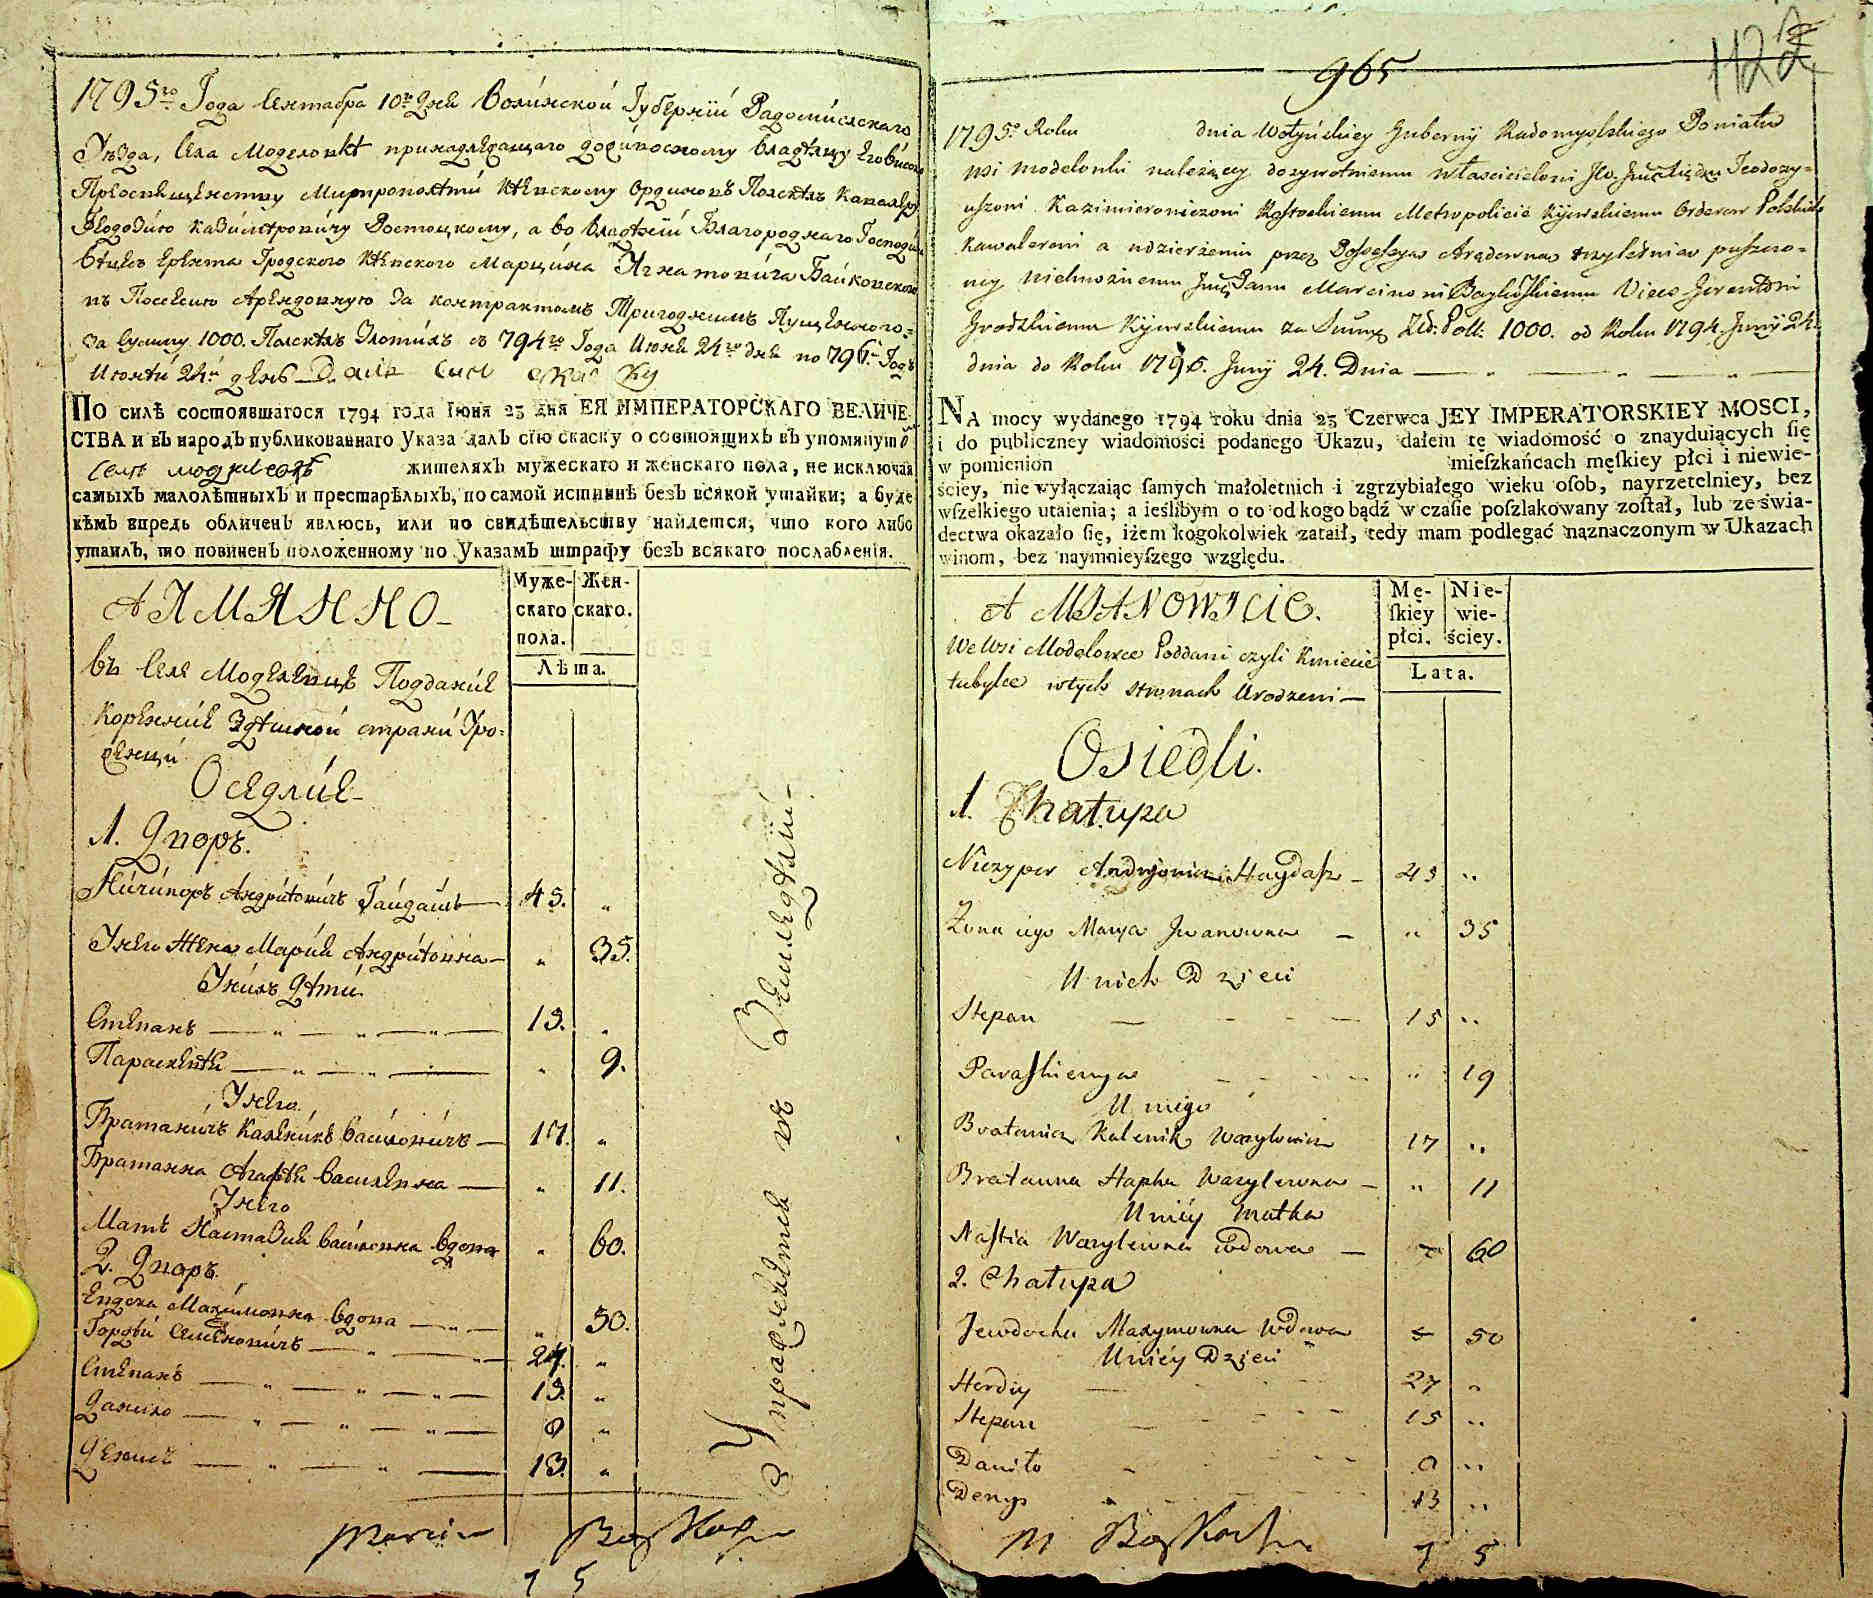 1795го Года Сентабра 10го Дня Волинской Губернии Радомисскаго
Уезда, Села Моделовкѣ принадлежащаго дожи́восному владѣлцу Его Високо
Преосвященству Митрополиту Кѣевскому Ординовъ Полскихъ Кавалеру
Феодозию Казимировичу Ростоцкому, а во владѣнии Благороднаго Господина
Регента Гродского Кѣевского Марцина Игнатовича Байковскаго
въ Посессию Арендовную За контрактомъ Тригоднимъ Пущенного
за Сумму 1000. Полскихъ Злотихъ с 794го Года Июня 24го дня по 796й Годъ
Июня 24й день Далъ сию скаску
ПО силѣ состоявшагося 1794 года Іюня 23 дня ЕЯ ИМПЕРАТОРСКАГО ВЕЛИЧЕ-
СТВА и въ народъ публикованнаго Указа далъ сію скаску о состоящихъ въ упомянутѡ
селѣ жителяхъ мужескаго и женскаго пола, не исключая
самыхъ малолѣтныхъ и престарѣлыхъ, по самой истиннѣ безъ всякой утайки; а буде
кѣмъ впредь обличенъ явлюсь, или по свидѣтельству найдется, что кого либо
утаилъ, то повиненъ положенному по Указамъ штрафу безъ всякаго послабленія.
АИМЯННО
Муже-скаго пола. Жен-скаго.
Лѣта.
въ Селе Моделевцѣ Поддание
Коренние Здѣшной страни Уро=
женци
Оседлие
1. Дворъ.
Ничипоръ Андрійовичъ Гайдашъ 45. „
У него Жена Мария Андрийовна „ 35.
У нихъ Дѣти
Степанъ 15. „
Параскевѣя „ 9.
У него
Братаничъ Каленикъ Василовичъ 17. „
Братанка Агафѣя Василевна „ 11.
У него
Матъ Настазия Василовна Вдова „ 60.
2. Дворъ.
Евдоха Максимовна Вдова „ 50.
Гордѣй Семеновичъ 27. „
Степанъ 15. „
Данило 8 „
Денисъ 13. „
Упражняется въ Земледѣлии
Marcin Baykowski
7 5
965
112
1795o Roku dnia Wołyńskiey Guberny Radomyslskiego Powiatu
wsi Modelowki należącey dozywotniemu właścicielowi JW. Jmć Xiędzu Teodozy=
uszowi Kazimierowiczowi Rostockiemu Metropolicie Kijowskiemu Orderow Polskich
Kawalerowi a w dzierżeniu przez Possessya Arędowna trzyletnia puszczo=
ney Wielmożnemu Jmć Panu Marcinowi Baykowskiemu Vice Jerentowi
Grodzkiemu Kijowskiemu za Summę Zł: Poll: 1000. od Roku 1794. Juny 24.
dnia do Roku 1796. Juny 24. Dnia
NA mocy wydanego 1794 roku dnia 23 Czerwca JEY IMPERATORSKIEY MOSCI,
i do publiczney wiadomości podanego Ukazu, dałem tę wiadomość o znayduiących ſię
w pomienion mieſzkańcach męſkiey płci i niewie-
ściey, nie wyłączaiąc ſamych małoletnich i zgrzybiałego wieku oſob, nayrzetelniey, bez
wſzelkiego utaienia; a ieślibym o to od kogo bądź w czaſie poſzlakowany zoſtał, lub ze świa-
dectwa okazało ſię, iżem kogokolwiek zataił, tedy mam podlegać naznaczonym w Ukazach
winom, bez naymnieyſzego względu.
A MIANOWICIE.
Mę-ſkiey płci. Nie-wie-ściey.
Lata.
We Wsi Modelowce Poddani czyli Kmiecie
tubylce w tych stronach Urodzeni
Osiedli.
1. Chałupa
Niczypor Andryjowicz Haydasz 45 „
Żona iego Marya Jwanowna „ 35
U nich Dzieci
Stepan 15 „
Paraskiewya „ 19
U niego
Bratanicz Kalenik Wazylowicz 17 „
Bratanna Hapka Wazylewna „ 11
U niéy matka
Nastia Wazylewna wdowa „ 60
2. Chałupa
Jewdocha Maxymowna Wdowa „ 50
U niéy Dzieci
Hordiy 27 „
Stepan 15 „
Daniło 8 „
Denys 13 „
M Baykowski
7 5